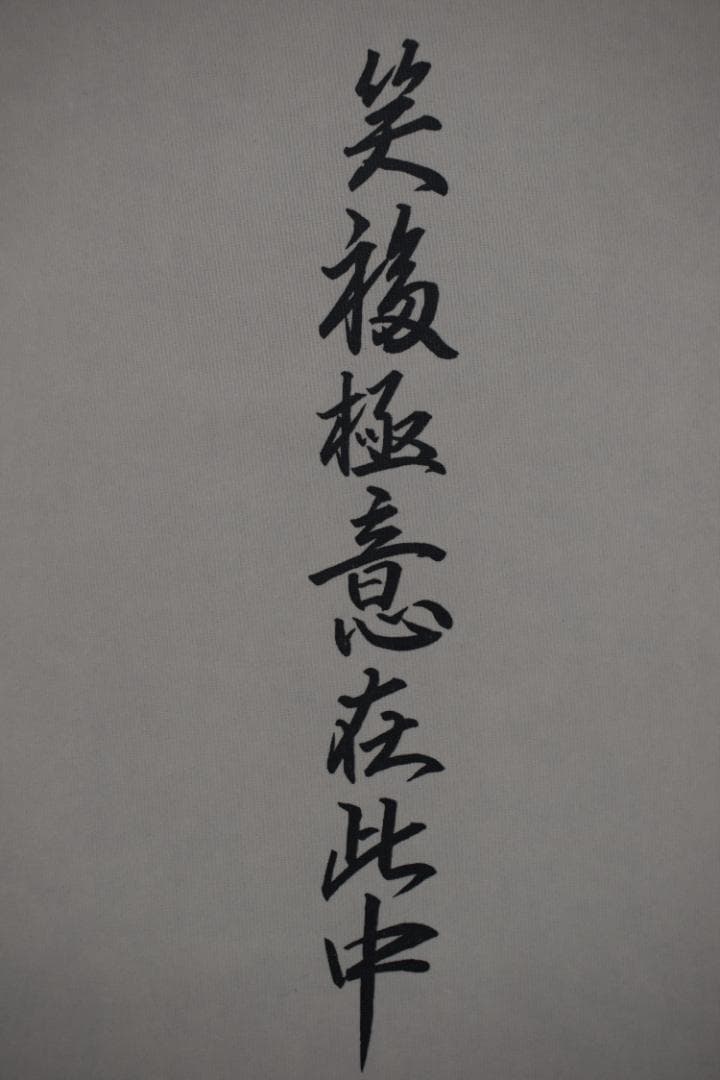 笑福極意在此中